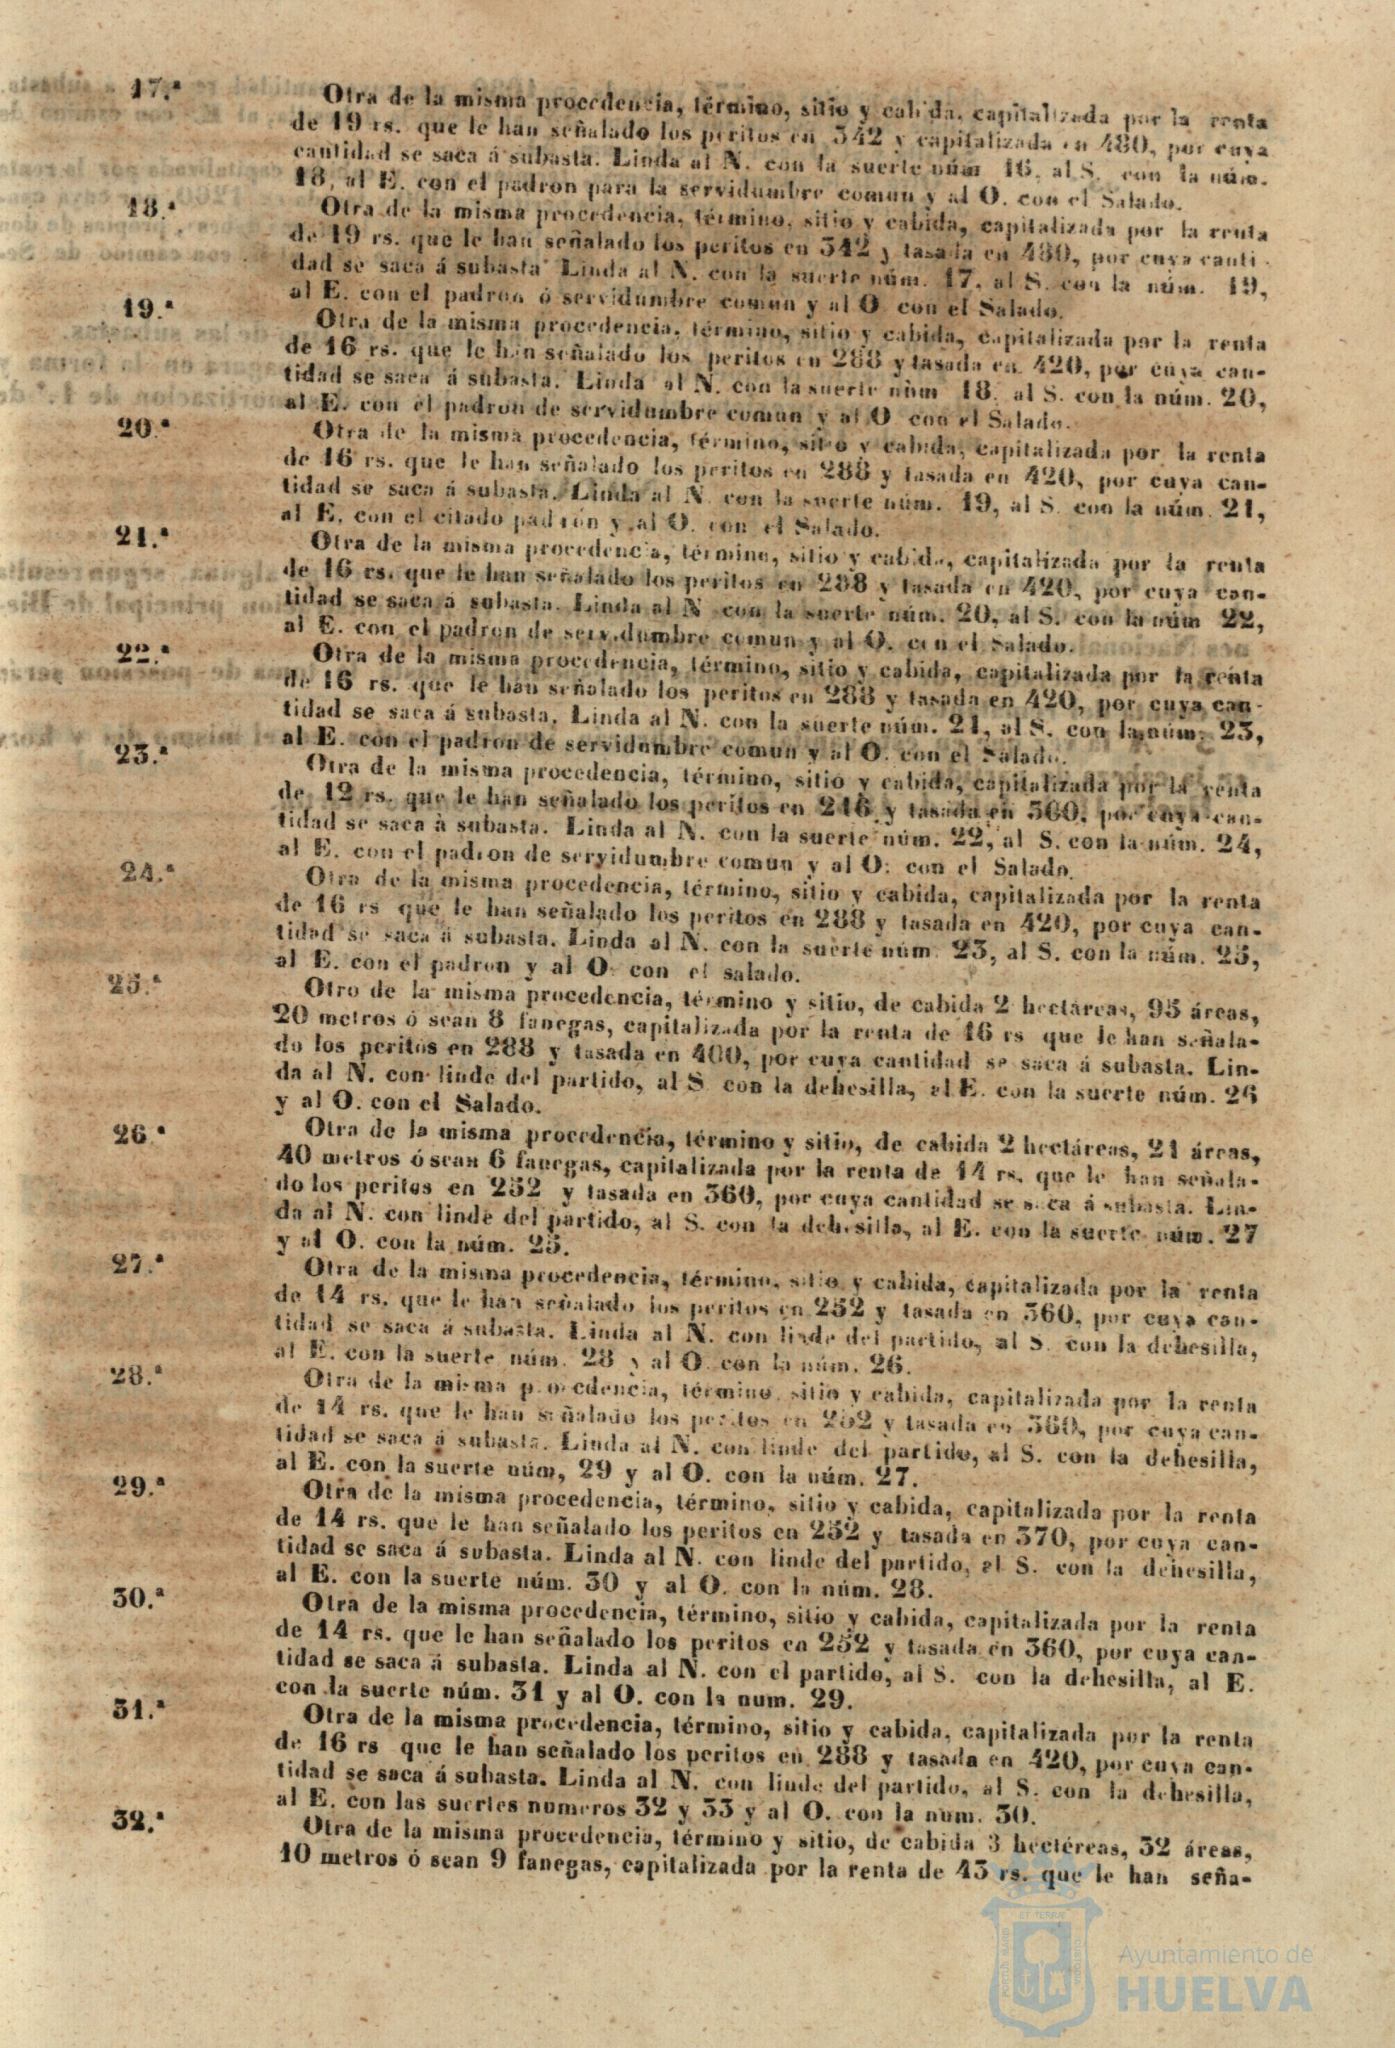 17.ª Otra de la misma procedencia, término, sitio y cabida, capitalizada por la renta
de 19 rs. que le han señalado los peritos en 342 y capitalizada en 480, por cuya
cantidad se saca á subasta. Linda al N. con la suerte núm 16, al S. con la núm.
18, al E. con el padron para la servidumbre comun y al O. con el Salado.
18.ª Otra de la misma procedencia, término, sitio y cabida, capitalizada por la renta
de 19 rs. que le han señalado los peritos en 342 y tasada en 480, por cuya canti-
dad se saca á subasta Linda al N. con la suerte núm. 17, al S. con la núm. 19,
al E. con el padron ó servidumbre comun y al O con el Salado.
19.ª Otra de la misma procedencia, término, sitio y cabida, capitalizada por la renta
de 16 rs. que le han señalado los peritos en 288 y tasada en 420, por cuya can-
tidad se saca á subasta. Linda al N. con la suerte núm 18, al S. con la núm. 20,
al E. con el padron de servidumbre comun y al O con el Salado.
20.ª Otra de la misma procedencia, término, sitio y cabida, capitalizada por la renta
de 16 rs. que le han señalado los peritos en 288 y tasada en 420, por cuya can-
tidad se saca á subasta. Linda al N con la suerte núm. 19, al S. con la núm. 21,
al E. con el citado padrón y al O. con el Salado.
21.ª Otra de la misma procedencia, término, sitio y cabida, capitalizada por la renta
de 16 rs. que le han señalado los peritos en 288 y tasada en 420, por cuya can-
tidad se saca á subasta. Linda al N con la suerte núm. 20, al S. con la núm 22,
al E. con el padron de servidumbre comun y al O. con el Salado.
22.ª Otra de la misma procedencia, término, sitio y cabida, capitalizada por la renta
de 16 rs. que le han señalado los peritos en 288 y tasada en 420, por cuya can-
tidad se saca á subasta. Linda al N. con la suerte núm. 21, al S. con la núm. 23,
al E. con el padron de servidumbre comun y al O. con el Salado.
23.ª Otra de la misma procedencia, término, sitio y cabida, capitalizada por la renta
de 12 rs. que le han señalado los peritos en 216 y tasada en 360, por cuya can-
tidad se saca à subasta. Linda al N. con la suerte núm. 22, al S. con la núm. 24,
al E. con el padron de servidumbre comun y al O: con el Salado.
24.ª Otra de la misma procedencia, término, sitio y cabida, capitalizada por la renta
de 16 rs que le han señalado los peritos en 288 y tasada en 420, por cuya can-
tidad se saca á subasta. Linda al N. con la suerte núm. 23, al S. con la núm. 25,
al E. con el padron y al O. con el salado.
25.ª Otro de la misma procedencia, término y sitio, de cabida 2 hectáreas, 95 áreas,
20 metros ó sean 8 fanegas, capitalizada por la renta de 16 rs que le han señala-
do los peritos en 288 y tasada en 400, por cuya cantidad se saca á subasta. Lin-
da al N. con linde del partido, al S con la dehesilla, al E. con la suerte núm. 26
y al O. con el Salado.
26.ª Otra de la misma procedencia, término y sitio, de cabida 2 hectáreas, 21 áreas,
40 metros ó sean 6 fanegas, capitalizada por la renta de 14 rs. que le han señala-
do los peritos en 252 y tasada en 360, por cuya cantidad se saca á subasta. Lin-
da al N. con linde del partido, al S. con la dehesilla, al E. con la suerte núm. 27
y al O. con la núm. 25.
27.ª Otra de la misma procedencia, término, sitio y cabida, capitalizada por la renta
de 14 rs. que le han señalado los peritos en 252 y tasada en 360, por cuya can-
tidad se saca á subasta. Linda al N. con linde del partido, al S. con la dehesilla,
al E. con la suerte núm. 28 y al O. con la núm. 26.
28.ª Otra de la misma procedencia, término, sitio y cabida, capitalizada por la renta
de 14 rs. que le han señalado los peritos en 252 y tasada en 360, por cuya can-
tidad se saca á subasta. Linda al N. con linde del partido, al S. con la dehesilla,
al E. con la suerte núm, 29 y al O. con la núm. 27.
29.ª Otra de la misma procedencia, término, sitio y cabida, capitalizada por la renta
de 14 rs. que le han señalado los peritos en 252 y tasada en 370, por cuya can-
tidad se saca á subasta. Linda al N. con linde del partido, al S. con la dehesilla,
al E. con la suerte núm. 30 y al O. con la núm. 28.
30.ª Otra de la misma procedencia, término, sitio y cabida, capitalizada por la renta
de 14 rs. que le han señalado los peritos en 252 y tasada en 360, por cuya can-
tidad se saca á subasta. Linda al N. con el partido, al S. con la dehesilla, al E.
con la suerte núm. 31 y al O. con la num. 29.
31.ª Otra de la misma procedencia, término, sitio y cabida, capitalizada por la renta
de 16 rs que le han señalado los peritos en 288 y tasada en 420, por cuya can-
tidad se saca á subasta. Linda al N. con linde del partido, al S. con la dehesilla,
al E. con las suertes numeros 32 y 33 y al O. con la num. 30.
32.ª Otra de la misma procedencia, término y sitio, de cabida 3 hectéreas, 32 áreas,
10 metros ó sean 9 fanegas, capitalizada por la renta de 43 rs. que le han seña-
Ayuntamiento de
HUELVA